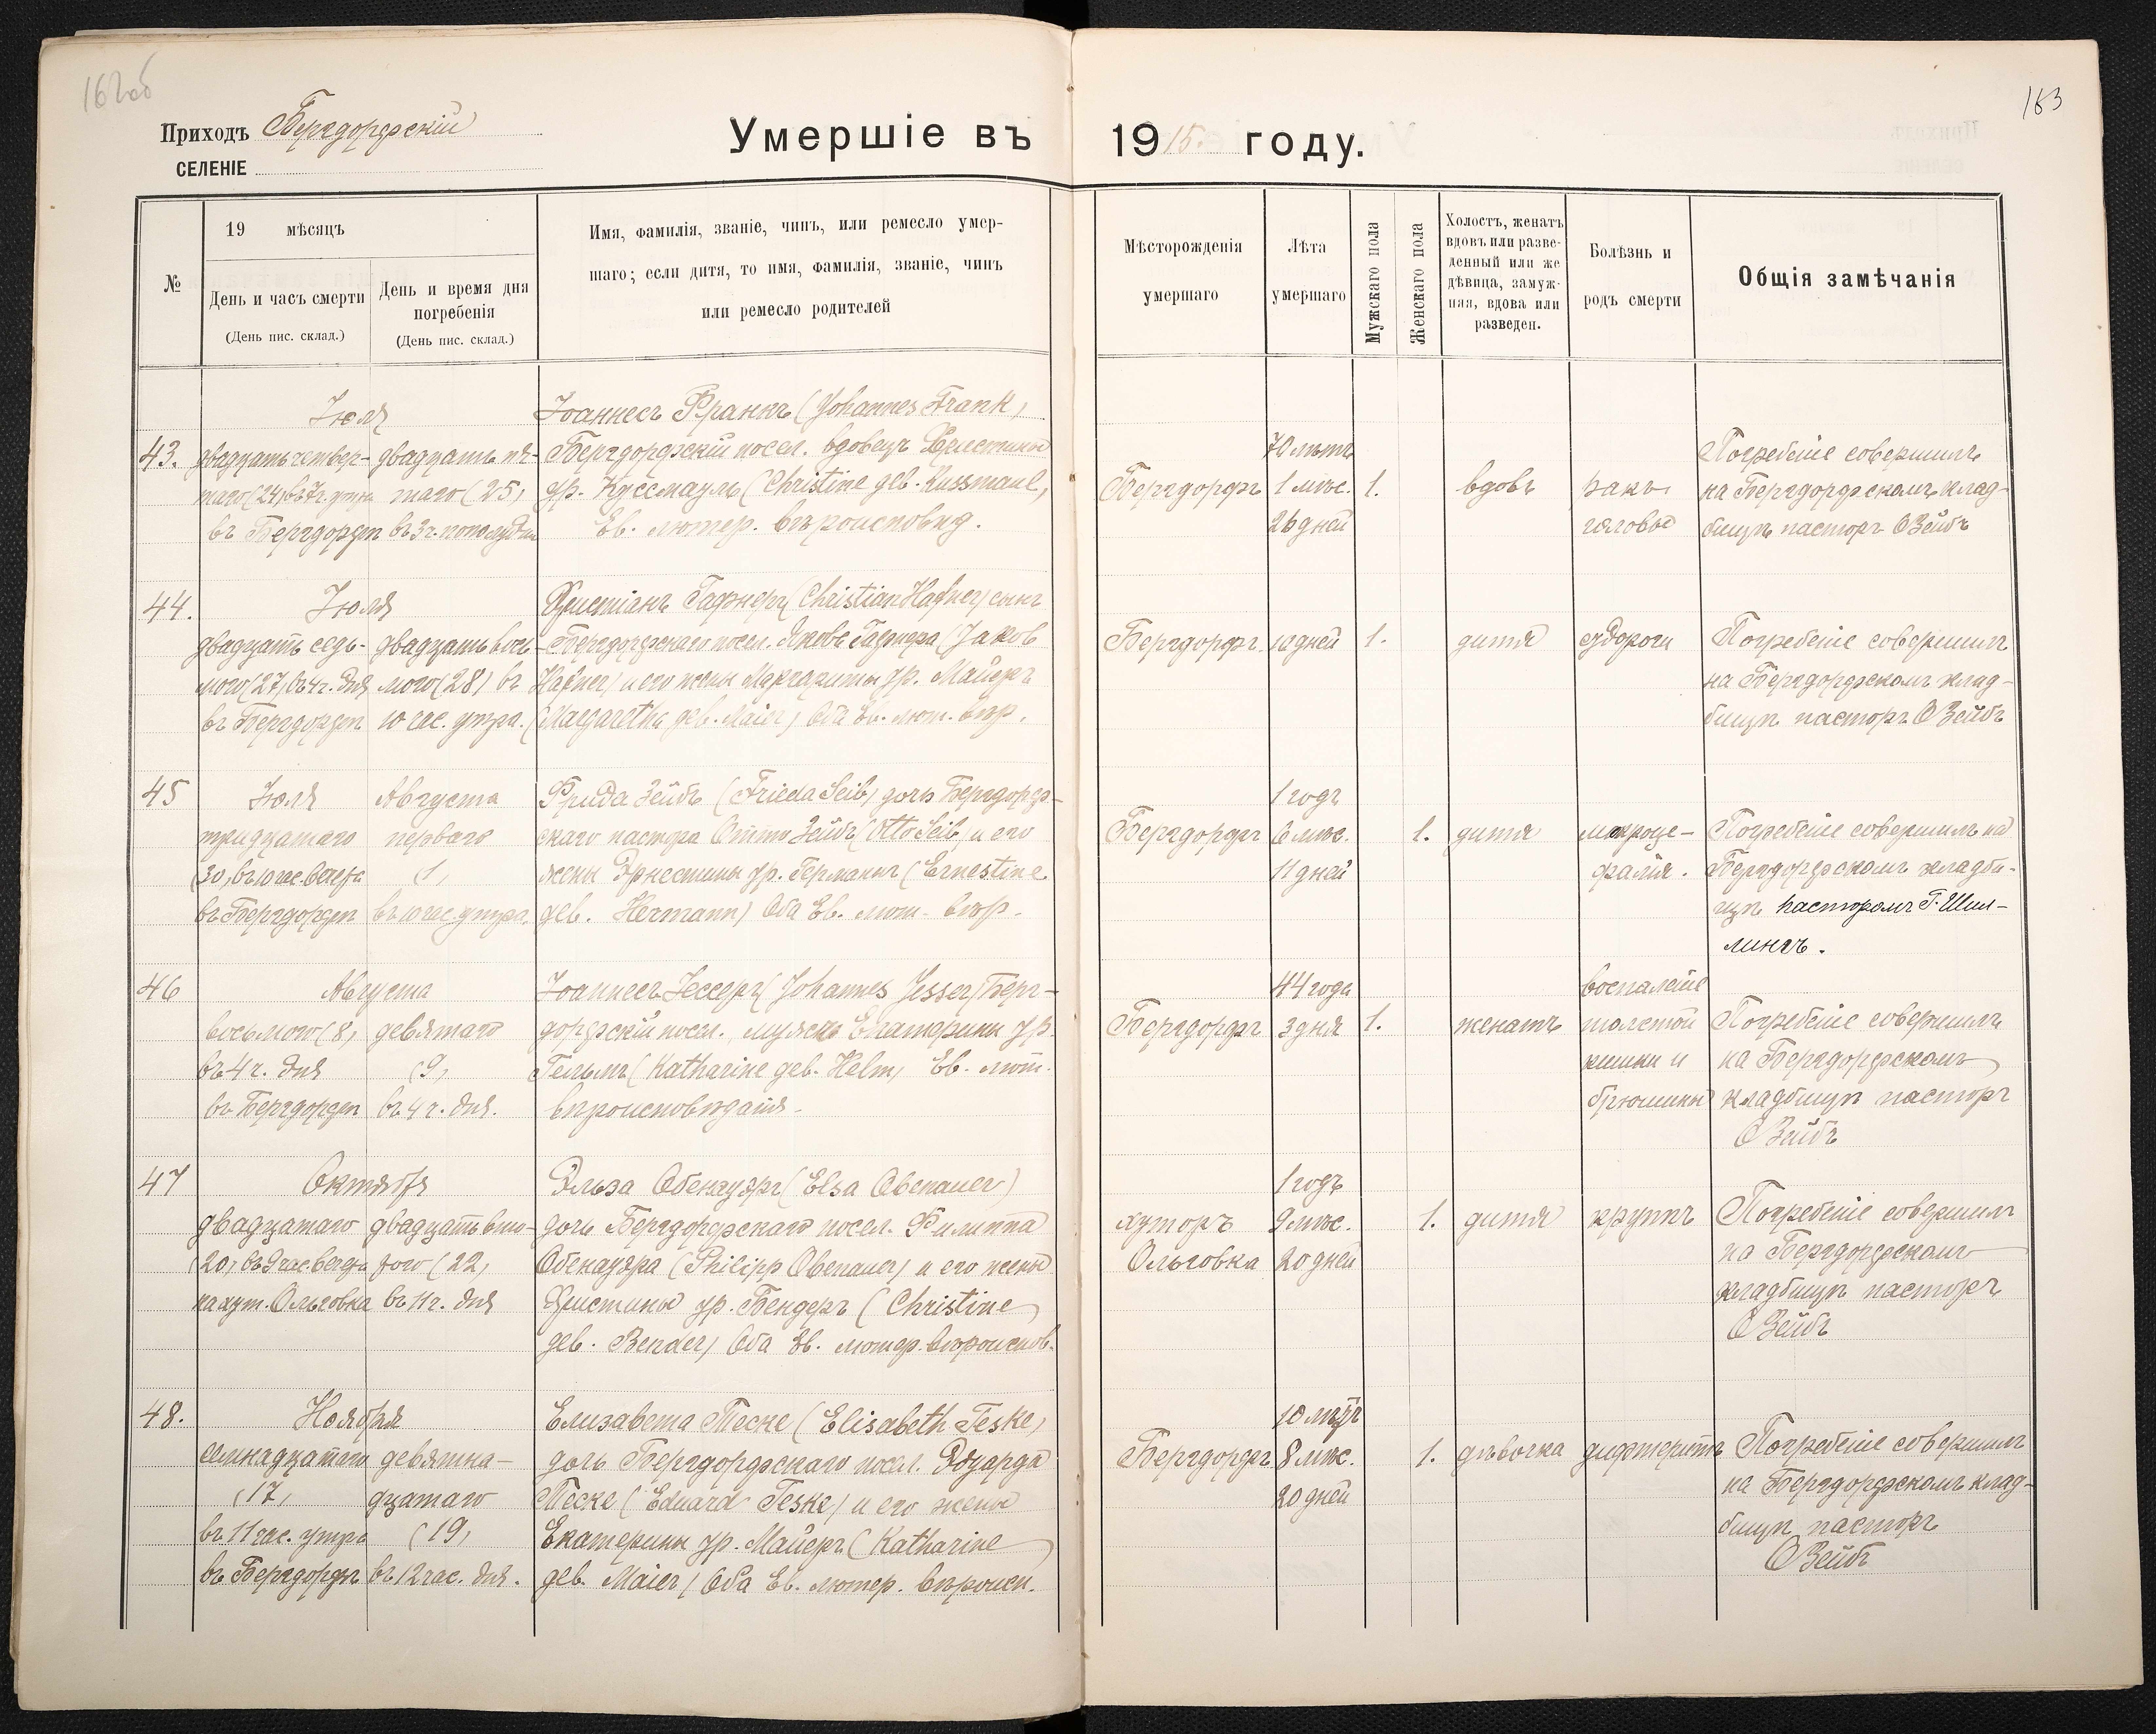 162об
183
Приходъ Бергдорфскій
СЕЛЕНІЕ
Умершіе въ 1915 году.
№
19 мѣсяцъ
День и часъ смерти
(День пис. склад.)
День и время дня
погребенія
(День пис. склад.)
Имя, фамилія, званіе, чинъ, или ремесло умер-
шаго; если дитя, то имя, фамилія, званіе, чинъ
или ремесло родителей
Мѣсторожденія
умершаго
Лѣта
умершаго
Мужскаго пола
Женскаго пола
Холостъ, женатъ
вдовъ или разве-
денный или же
дѣвица, замуж-
няя, вдова или
разведен.
Болѣзнь и
родъ смерти
Общія замѣчанія
43.
Іюля
двадцать четвер-
таго (24) въ 7 г. утра
въ Бергдорфѣ
двадцать пя-
таго (25)
въ 3 ч. пополудни
Іоаннесъ Франкъ (Johannes Frank)
Бергдорфскій посел. вдовецъ Христины
ур. Куссмауль (Christine geb. Kussmaul)
Ев. лютер. вѣроисповѣд.
Бергдорфъ
70 лѣтъ
1 мѣс.
26 дней
1.
вдовъ
ракъ
головы
Погребеніе совершилъ
на Бергдорфскомъ клад-
бищѣ пасторъ О Зейбъ
44.
Іюля
двадцать седь-
мого (27) въ 4 ч. дня
въ Бергдорфѣ
двадцать вось-
мого (28) въ
10 час. утра.
Христіанъ Гафнеръ (Christian Hafner) сынъ
Бергдорфскаго посел. Якова Гафнера (Jakob
Hafner) и его жены Маргариты ур. Майеръ
(Margaretha geb. Maier) Оба Ев. лют. вѣр.
Бергдорфъ
10 дней
1.
дитя
судороги
Погребеніе совершилъ
на Бергдорфскомъ клад-
бищѣ пасторъ О Зейбъ
45
Іюля
тридцатаго
(30) въ 10 час. вечера
въ Бергдорфѣ
Августа
перваго
(1)
въ 10 час. утра.
Фрида Зейбъ (Frieda Seib) дочь Бергдорф-
скаго пастора Отто Зейбъ (Otto Seib) и его
жены Эрнестины ур. Германнъ (Ernestine
geb. Hermann) Оба Ев. лют. вѣр.
Бергдорфъ
1 годъ
6 мѣс.
11 дней
1.
дитя
макроце-
фалія.
Погребеніе совершилъ на
Бергдорфскомъ кладби-
щѣ пасторомъ Г. Шил-
лингъ.
46
Августа
восьмого (8)
въ 4 ч. дня
въ Бергдорфѣ
девятаго
(9)
въ 4 ч. дня.
Іоаннесъ Іессеръ (Johannes Jesser) Берг-
дорфскій посел. мужъ Екатерины ур.
Гельмъ (Katharine geb. Helm) Ев. лют.
вѣроисповѣданія.
Бергдорфъ
44 года
3 дня
1.
женатъ
воспаленіе
толстой
кишки и
брюшины
Погребеніе совершилъ
на Бергдорфскомъ
кладбищѣ пасторъ
О Зейбъ
47
Октября
двадцатаго
(20) въ 9 час. вечера
на хут. Ольговка
двадцать вто-
рого (22)
въ 11 ч. дня
Эльза Обенауэръ (Elsa Obenauer)
дочь Бергдорфскаго посел. Филиппа
Обенауэра (Philipp Obenauer) и его жены
Христины ур. Бендеръ (Christine
geb. Bender) Оба Ев. лютер. вѣроисповѣ.
хуторъ
Ольговка
1 годъ
9 мѣс.
20 дней
1.
дитя
круппъ
Погребеніе совершилъ
на Бергдорфскомъ
кладбищѣ пасторъ
О Зейбъ
48.
Ноября
семнадцатаго
(17)
въ 11 час. утра
въ Бергдорфѣ
девятна-
дцатаго
(19)
въ 12 час. дня.
Елизавета Теске (Elisabeth Teske)
дочь Бергдорфскаго посел. Эдуарда
Теске (Eduard Teske) и его жены
Екатерины ур. Майеръ (Katharine
geb. Maier) Оба Ев. лютер. вѣроисп.
Бергдорфъ
10 лѣтъ
8 мѣс.
20 дней
1.
дѣвочка
дифтеритъ
Погребеніе совершилъ
на Бергдорфскомъ клад-
бищѣ пасторъ
О Зейбъ